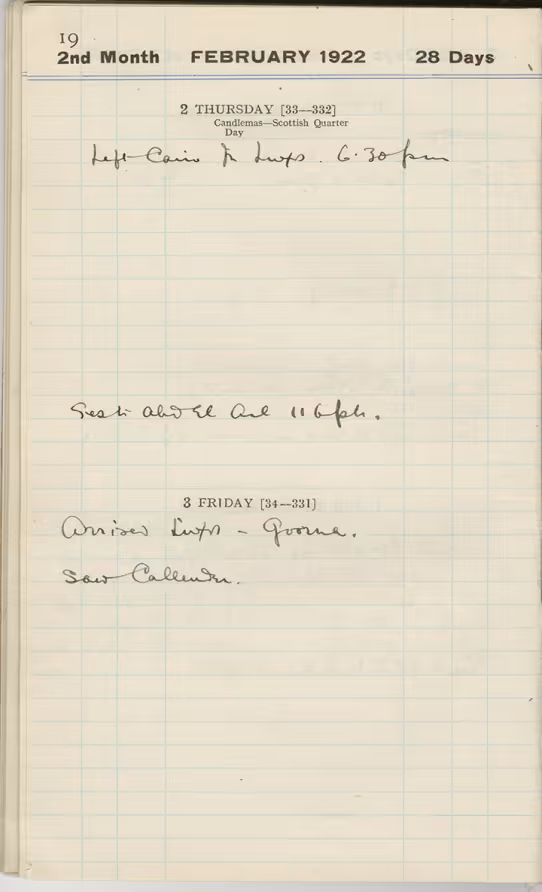 19
2nd Month FEBRUARY 1922 28 Days
2 THURSDAY [33—332]
Candlemas—Scottish Quarter
Day
Left Cairo for Luxor. 6.30 pm
Abd El Aal 116
3 FRIDAY [34—331]
Arrived Luxor - Goorna.
Saw Callender.